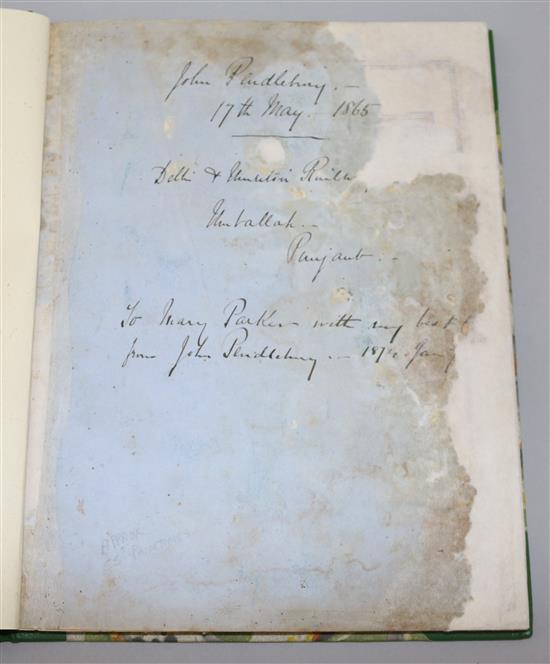 John Pendlebury. —
17th May. 1865
Delhi & Umritsir Railw
Umballah. —
Punjaub. —
To Mary Parker with my best
from John Pendlebury. — Jany